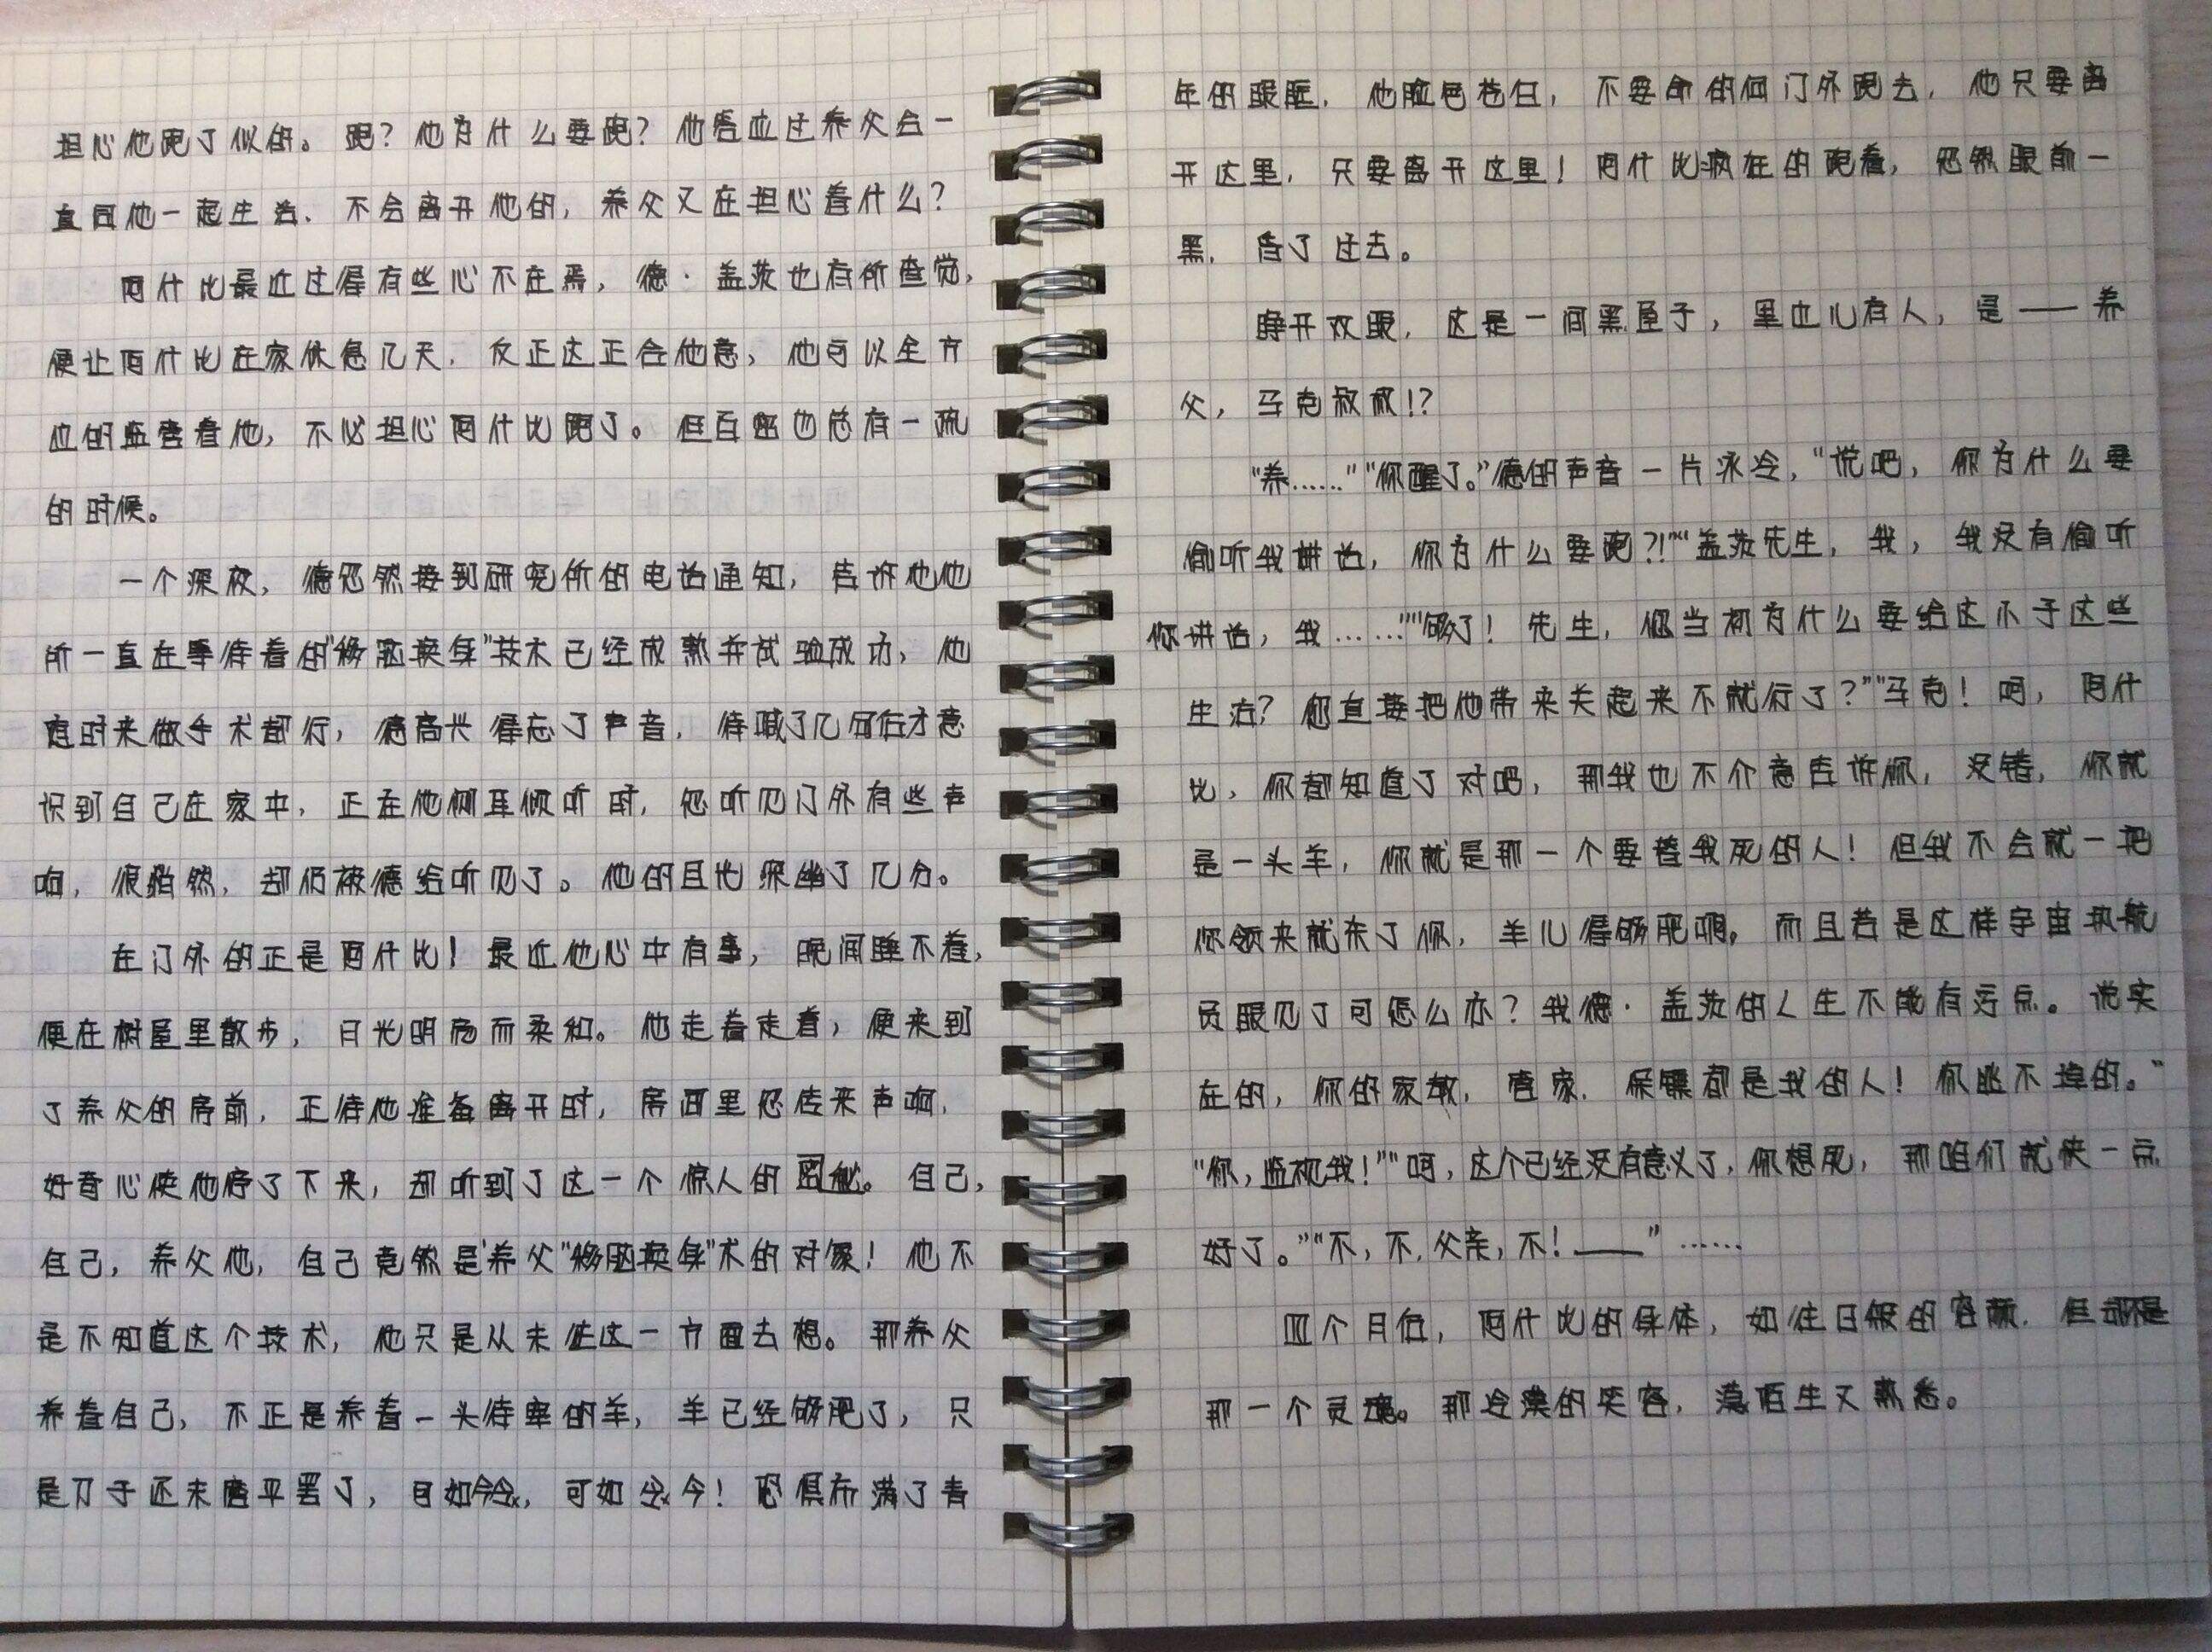 担心他跑了似的。跑？他为什么要跑？他答应过养父会一
直同他一起生活、不会离开他的，养父又在担心着什么？
阿什比最近过得有些心不在焉，德·盖茨也有所查觉，
便让阿什比在家休息几天，反正这正合他意，他可以全方
位的监管着他，不必担心阿什比跑了。但百密也总有一疏
的时候。
一个深夜，德忽然接到研究所的电话通知，告诉他他
所一直在等待着的“移脑换身”技术已经成熟并试验成功，他
随时来做手术都行，德高兴得忘了声音，待喊了几句后才意
识到自己在家中，正在他侧耳倾听时，忽听见门外有些声
响，很猝然，却仍被德给听见了。他的目光深幽了几分。
在门外的正是阿什比！最近他心中有事，晚间睡不着，
便在树屋里散步，月光明亮而柔和。他走着走着，便来到
了养父的房前，正待他准备离开时，房间里忽传来声响，
好奇心使他停了下来，却听到了这一个惊人的密秘。自己，
自己，养父他，自己竟然是养父“移脑换身”术的对象！他不
是不知道这个技术，他只是从未往这一方面去想。那养父
养着自己，不正是养着一头待宰的羊，羊已经够肥了，只
是刀子还未磨平罢了，可如今，可如今！恐惧布满了青
年的眼眶，他脸色苍白，不要命的向门外跑去，他只要离
开这里，只要离开这里！阿什比疯狂的跑着，忽然眼前一
黑，昏了过去。
睁开双眼，这是一间黑屋子，里边儿有人，是——养
父，马克叔叔！？
“养……”“你醒了。”德的声音一片冰冷，“说吧，你为什么要
偷听我讲话，你为什么要跑？！”“盖茨先生，我，我没有偷听
你讲话，我……”“够了！先生，您当初为什么要给这小子这些
生活？您直接把他带来关起来不就行了？”“马克！呵，阿什
比，你都知道了对吧，那我也不介意告诉你，没错，你就
是一头羊，你就是那一个要替我死的人！但我不会就一把
你领来就杀了你，羊儿得够肥啊。而且若是这样宇宙执航
员眼见了可怎么办？我德·盖茨的人生不能有污点。说实
在的，你的家教，管家，保镖都是我的人！你逃不掉的。”
“你，监视我！”“呵，这个已经没有意义了，你想死，那咱们就快一点
好了。”“不，不，父亲，不！——”……
四个月后，阿什比的身体，如往日般的容颜，但却不是
那一个灵魂。那冷漠的笑容，蔼陌生又熟悉。